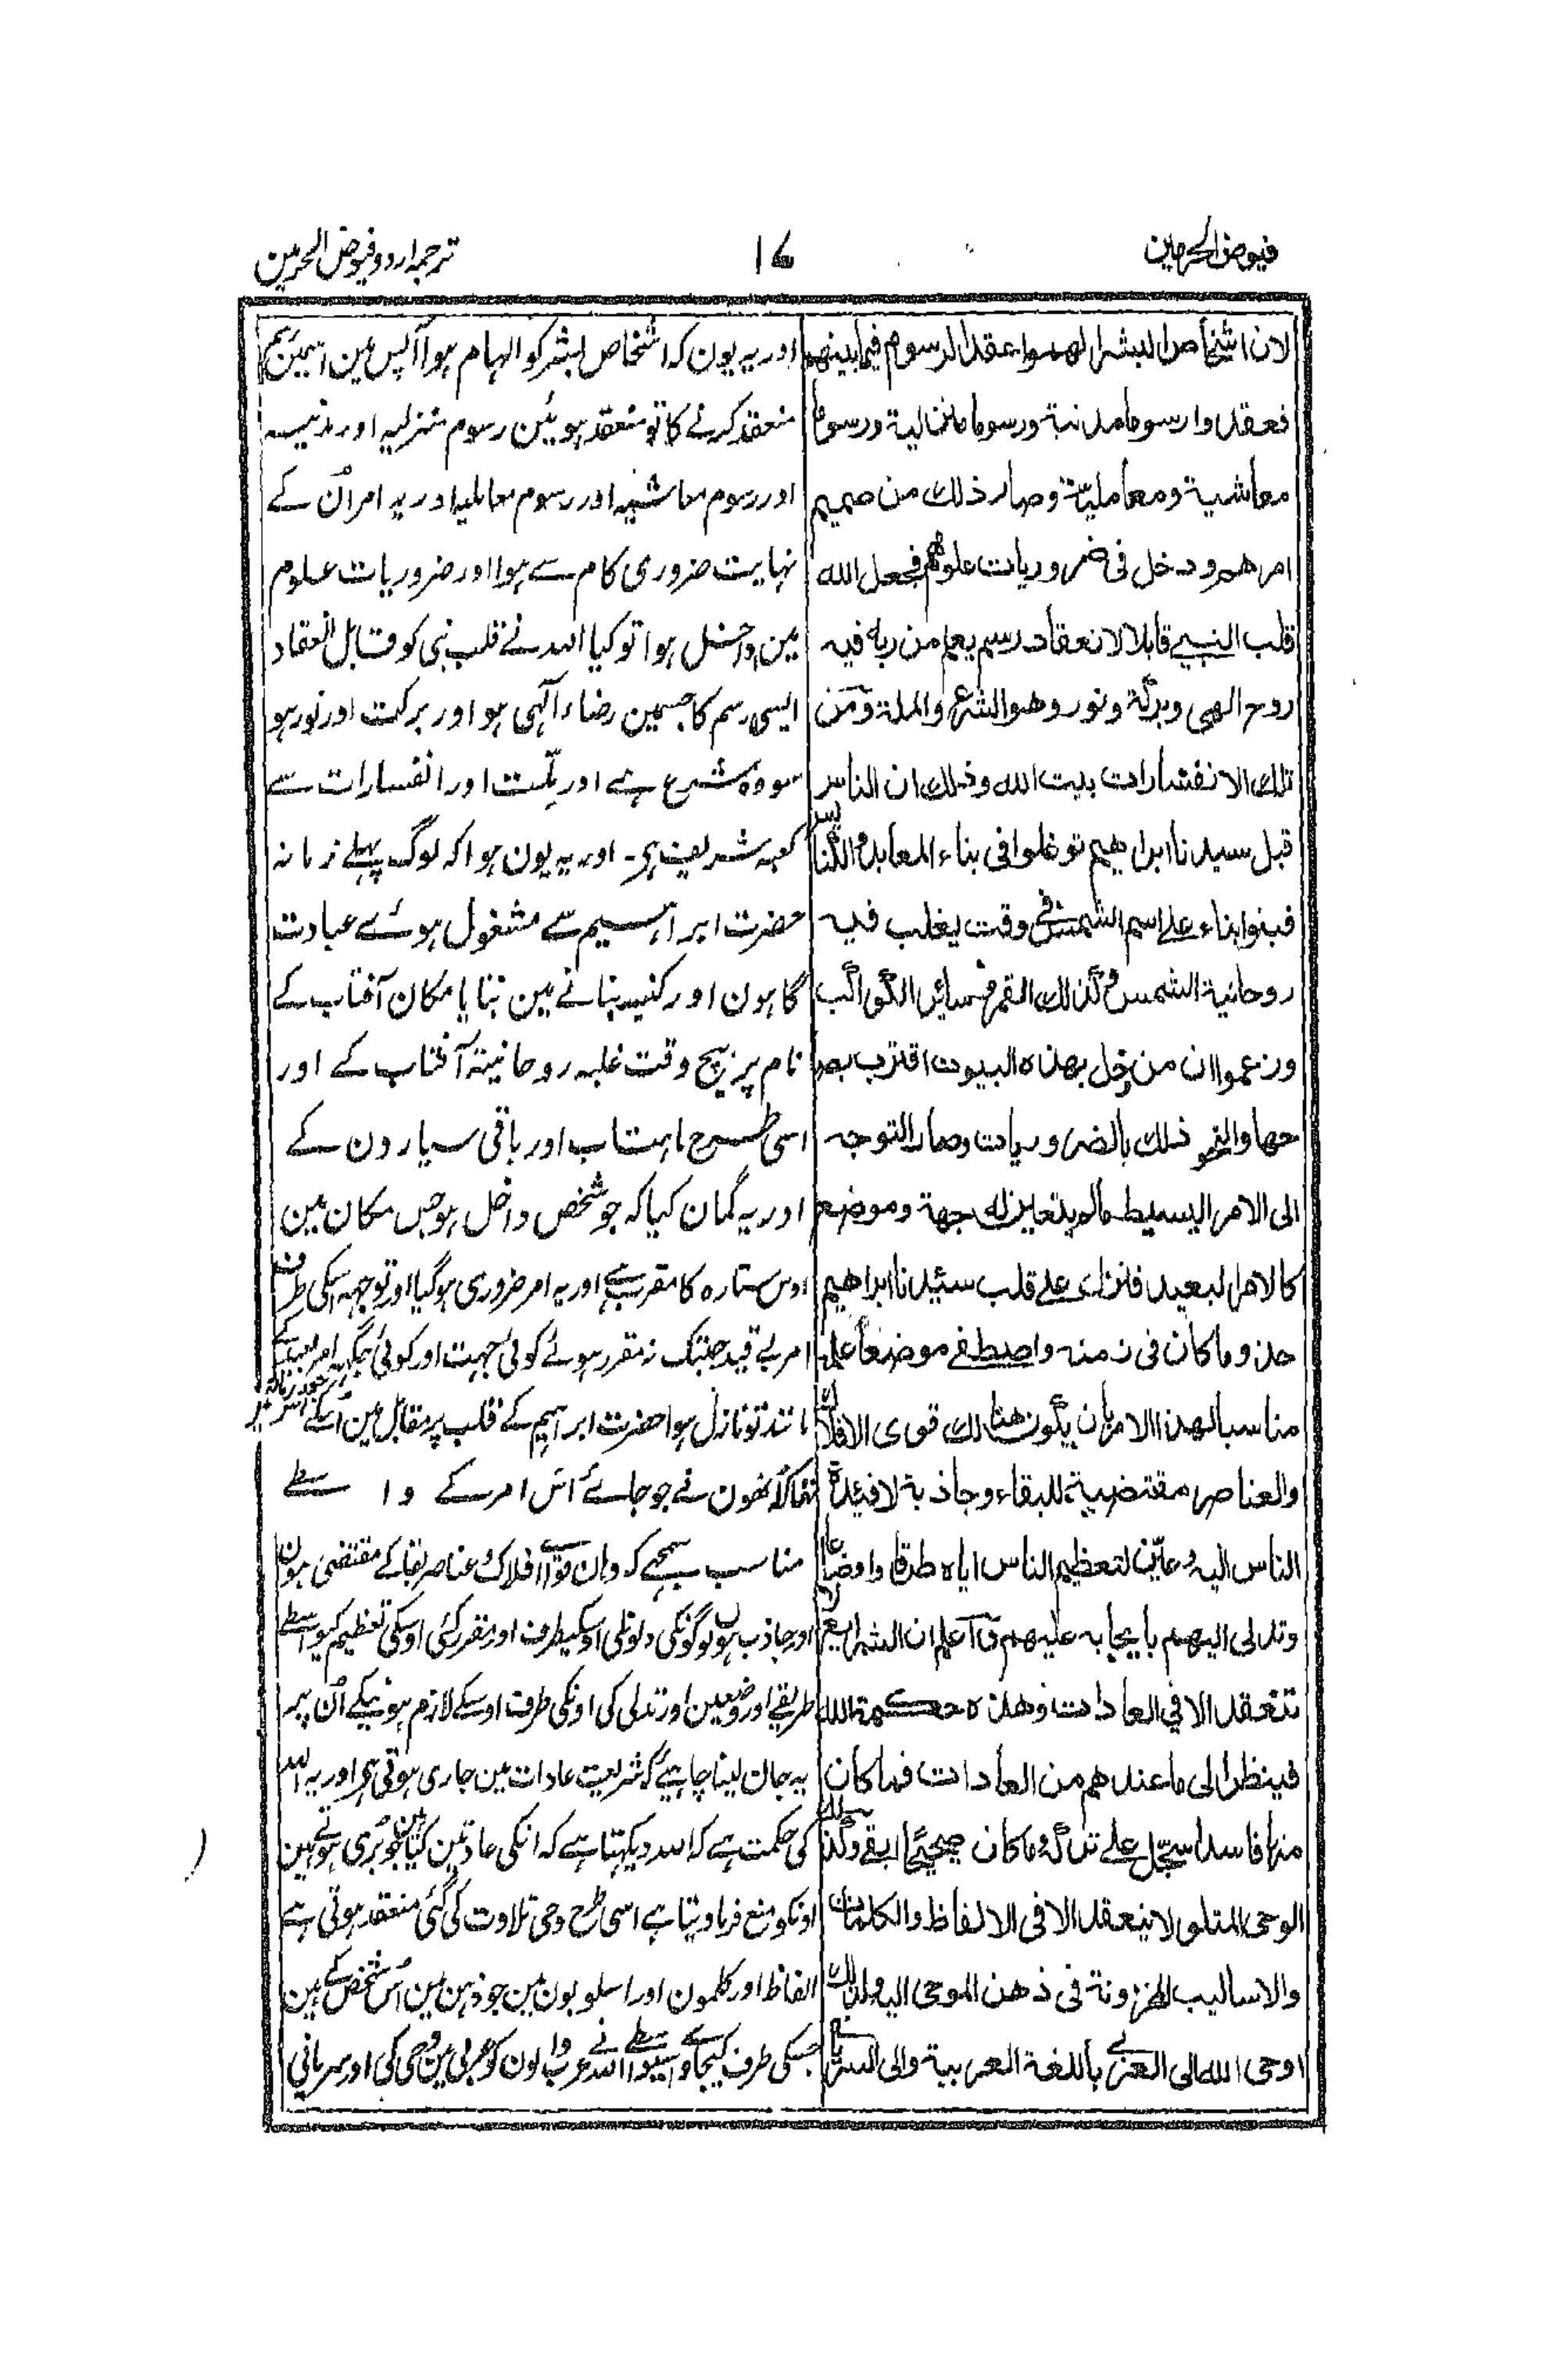 فیوض الحرمین
۱۶
ترجمہ اردو فیوض الحرمین
لان اشخاص البشر الهموا عقد الرسوم فیما بینهم
فعقدوا رسوما مدنیة ورسوما منزالیة ورسوما
معاشیة ومعاملیّة وصار ذلك من صمیم
امرهم ودخل فی ضروریات علومهم فجعل الله
قلب النبی قابلا لانعقاد رسم یعلم من ربه فیه
روح الهی وبرکة ونور وهو الشرع والملة ومن
تلك الانفشارات بیت الله وذلك ان الناس
قبل سیدنا ابراهیم توغلوا فی بناء المعابد والکنائس
فبنوا بناء علے اسم الشمس فی وقت یغلب فیه
روحانیة الشمس وکذلك القمر وسائر الکواکب
وزعموا ان من دخل بهذه البیوت اقترب بصا
حبها والتحق ذلك بالضروریات وصار التوجه
الی الامر البسیط مالم یتعین له جهة وموضع
کالامر البعید فنزل علے قلب سیدنا ابراهیم
حذو ما کان فی زمنه واصطفے موضعا علمه
مناسبا لهذا الامر بان یکون هنالك قوی الافلاك
والعناصر مقتضیة للبقاء وجاذبة لافئدة
الناس الیه وعیّن لتعظیم الناس ایاه طرقا واوضاعا
وتدلی الیهم بایجابه علیهم واعلم ان الشرایع لا
تنعقد الا فی العادات وهذه حکمة الله
فینظر الی ما عندهم من العادات فما کان
منها فاسدا سجّل علے ترکه وما کان صحیحًا ابقے وکذلك
الوحی المتلو لا ینعقد الا فی الالفاظ والکلمات
والاسالیب المخزونة فی ذهن الموحی الیه ولذلك
اوحی الله الی العربی باللغة العربیة والی السریانی
اور یہ یون کہ اشخاص بشر کو الہام ہوا آپس مین رسمین
منعقد کرنے کا تو منعقد ہوئین رسوم منزلیہ اور مدنیہ
اور رسوم معاشیہ اور رسوم معاملیہ اور یہ امر اُن کے
نہایت ضروری کام سے ہوا اور ضروریات علوم
مین داخل ہوا تو کیا اللہ نے قلب نبی کو قابل انعقاد
ایسی رسم کا جسمین رضاء آلہی ہو اور برکت اور نور ہو
سو وہ شرع ہے اور ملّت اور انفسارات سے
کعبہ شریف ہی۔ اور یہ یون ہوا کہ لوگ پہلے زمانہ
حضرت ابراہیم سے مشغول ہوئے عبادت
گاہون اور کنیسہ بنانے مین بنایا مکان آفتاب کے
نام پر بیچ وقت غلبہ روحانیتہ آفتاب کے اور
اسی طرح ماہتاب اور باقی سیارون کے
اور یہ گمان کیا کہ جو شخص داخل ہو جس مکان مین
اوس ستارہ کا مقرب ہے اور یہ امر ضروری ہوگیا اور توجہہ اسکی طرف
امر بے قید جبتک نہ مقرر ہوئے کوئی جہت اور کوئی جگہہ امر بعید کے
مانند تو نازل ہوا حضرت ابراہیم کے قلب پر مقابل مین اُسکے
تھا کہ اُنھون نے جو جائے اُس امر کے واسطے
مناسب سمجھے کہ وہان قوّاے افلاک و عناصر بقا کے مقتضی ہون
اور جاذب ہون لوگونکی دلونکی اوسکیطرف اور مقرر کئی اوسکی تعظیم کیواسطے
طریقے اور وضعین اور تدلی کی اونکی طرف اوسکے لازم ہونیکے اُن پر
یہ جان لینا چاہیے کہ شریعت عادات مین جاری ہوتی ہی اور یہ اللہ
کی حکمت ہے کہ اللہ دیکہتا ہے کہ انکی عادتین کیا ہین جو بُری ہوتے ہین
اونکو منع فرما دیتا ہے اسی طرح وحی تلاوت کی گئی منعقد ہوتی ہے
الفاظ اور کلمون اور اسلوبون مین جو ذہن مین اُس شخص کے ہین
جسکی طرف کیجاوے اسیواسطے اللہ نے عرب والون کو عربی مین وحی کی اور سریانی